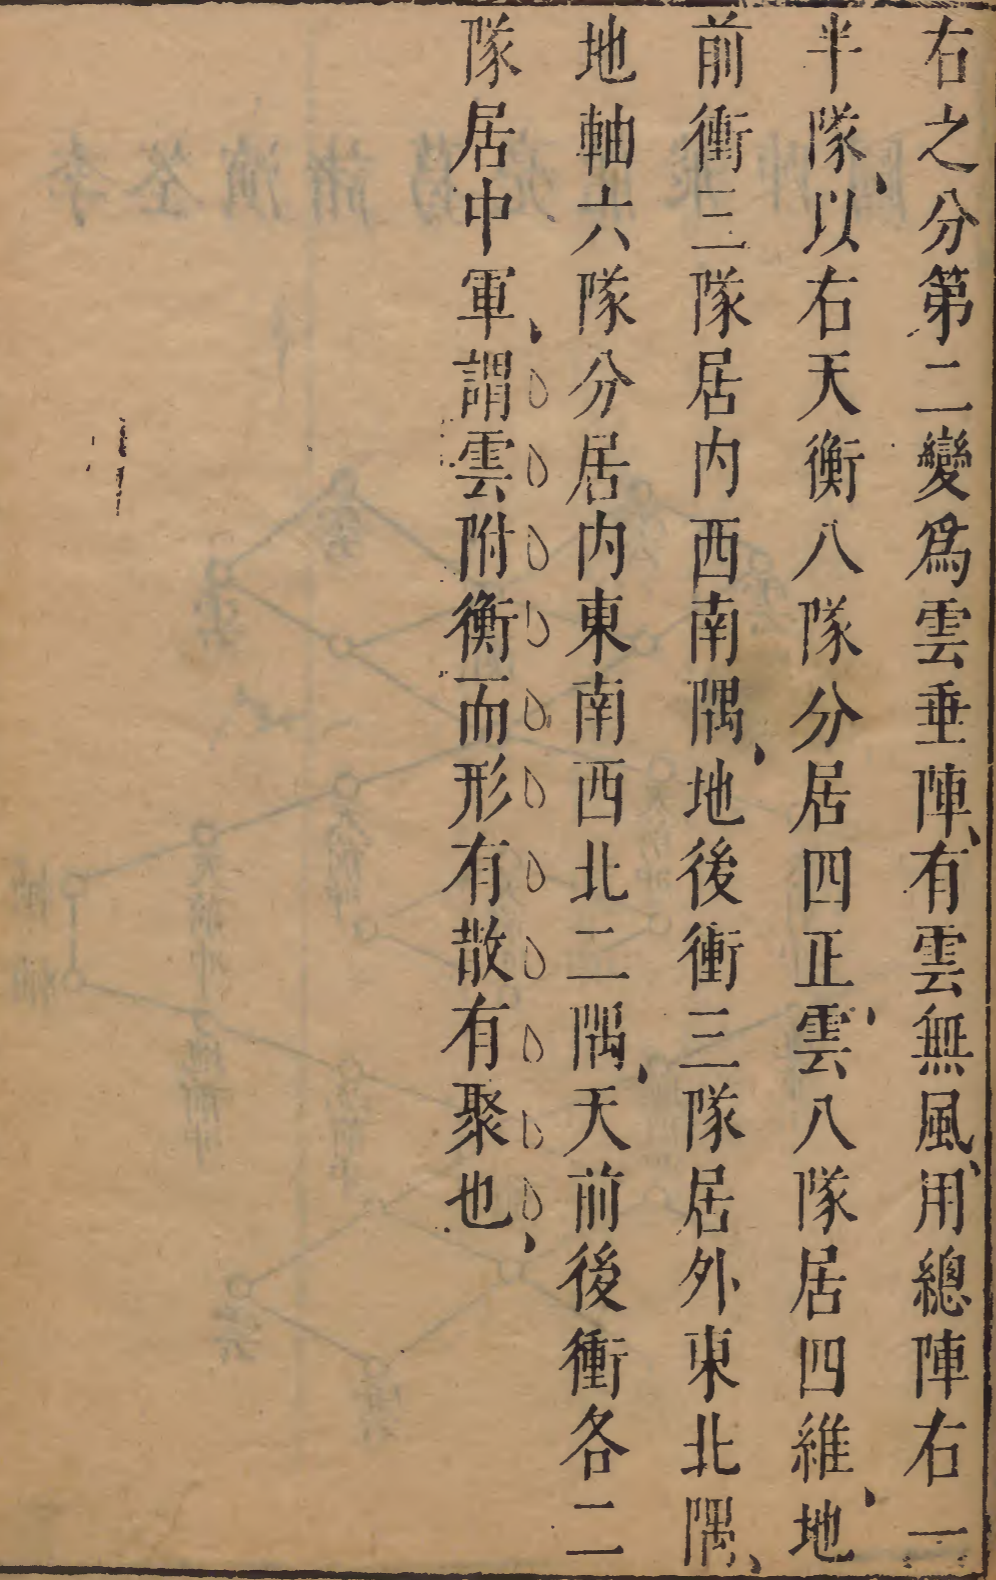 右之分第二變爲雲垂陣、有雲無風、用總陣右一
半隊、以右天衡八隊分居四正、雲八隊居四維、地
前衝三隊居内西南隅、地後衝三隊居外東北隅、
地軸六隊分居内東南西北二隅、天前後衝各二
隊居中軍、謂雲附衡而形有散有聚也、